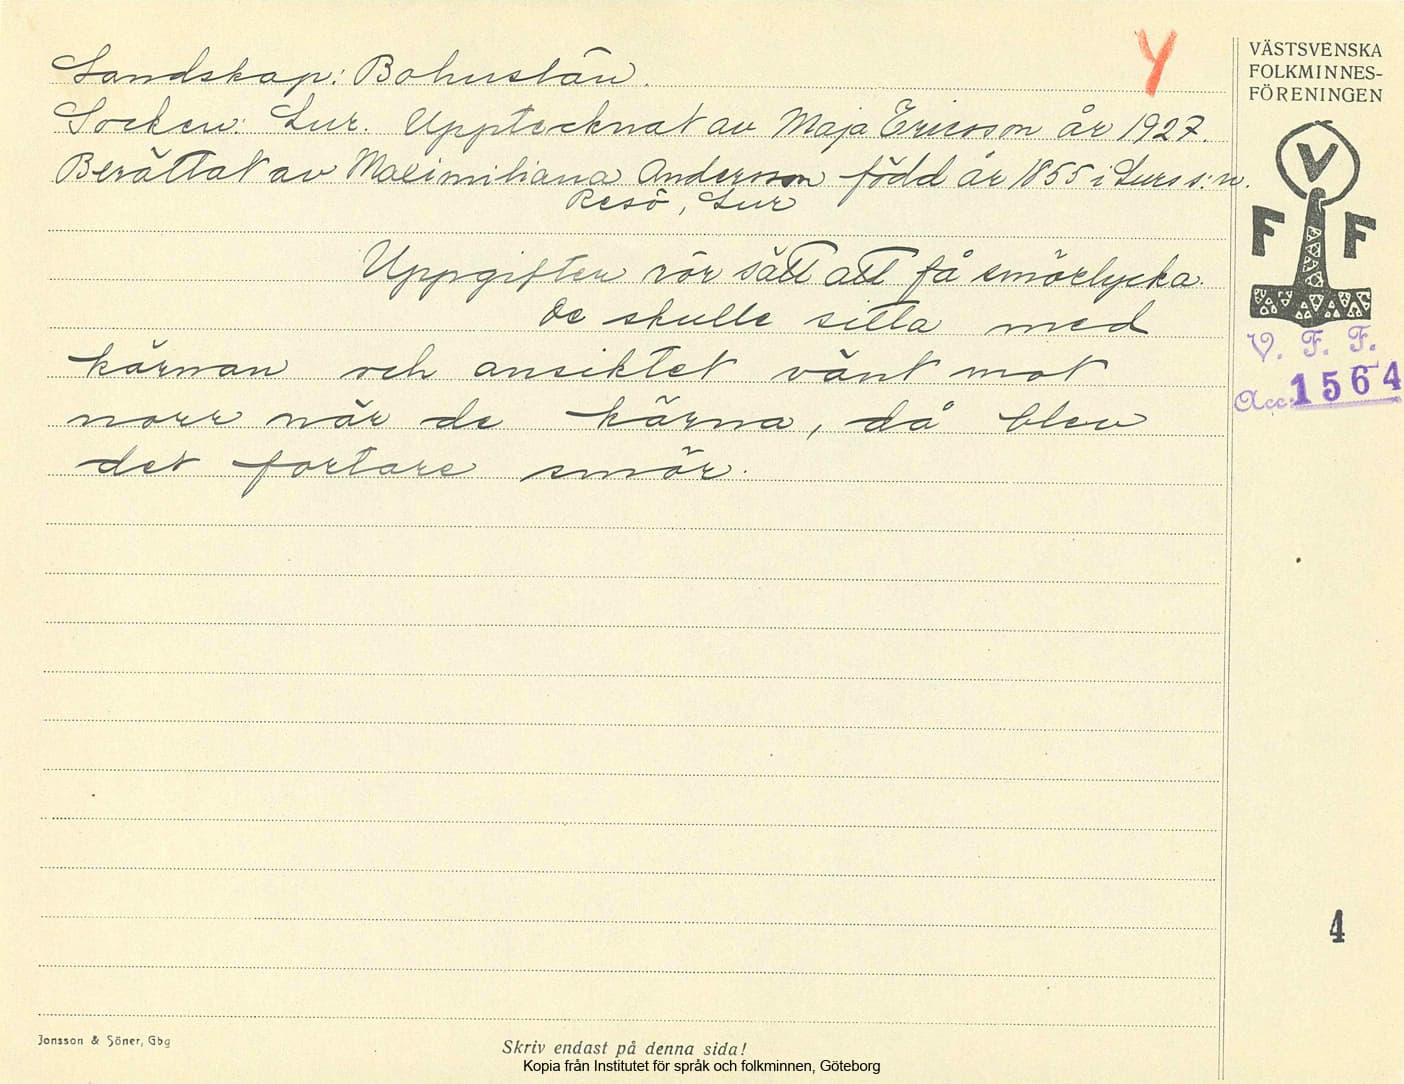 Landskap: Bohuslän.
Socken: Lur. Upptecknat av Maja Ericsson år 1927.
Berättat av Maximiliana Andersson född år 1855 i Lurs s:n.
Resö, Lur
Uppgiften rör sätt att få smörlycka.
De skulle sitta med
kärnan och ansiktet vänt mot
norr när de kärna, då blev
det fortare smör.
Y
VÄSTSVENSKA
FOLKMINNES-
FÖRENINGEN
V
F F
V. F. F.
Acc: 1564
4
Jonsson & Söner, Gbg
Skriv endast på denna sida!
Kopia från Institutet för språk och folkminnen, Göteborg